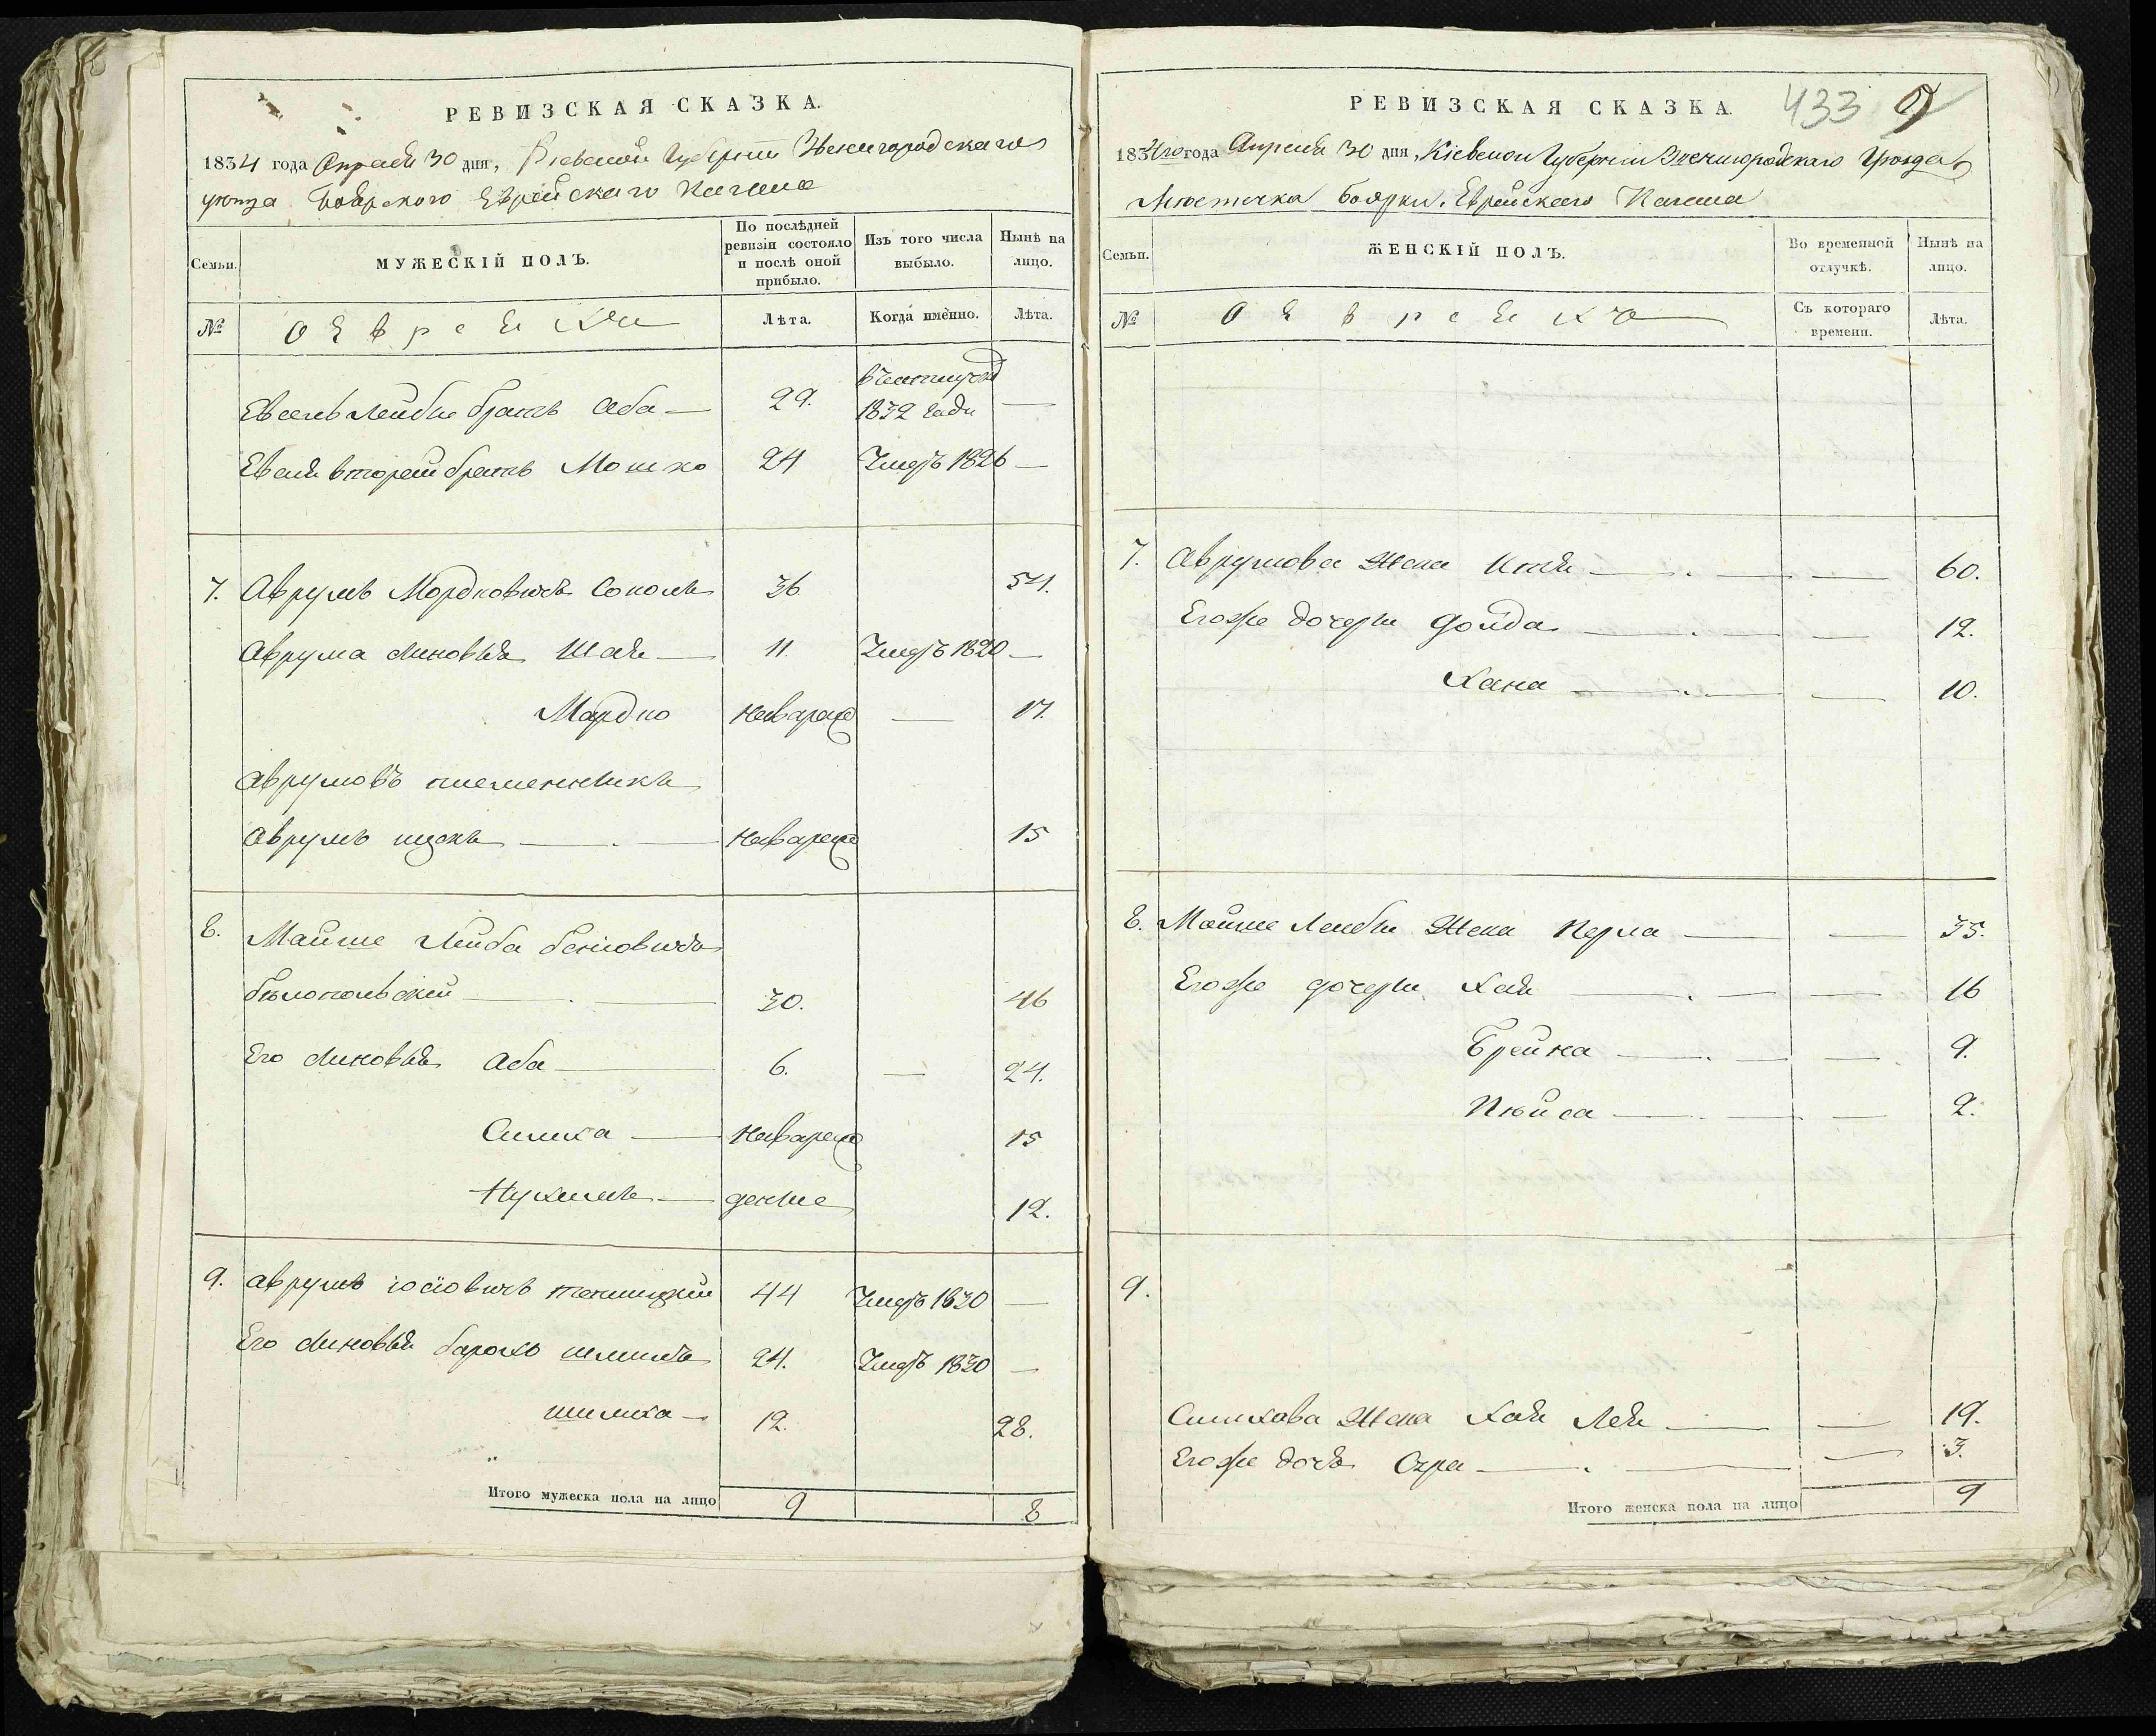 РЕВИЗСКАЯ СКАЗКА.
1834 года Апреля 30 дня, Киевской Губернии Звенигородскаго
уезда Боярского Еврейскаго Кагала
Семьи.
МУЖЕСКІЙ ПОЛЪ.
По послѣдней ревизіи состояло и послѣ оной прибыло.
Изъ того числа выбыло.
Нынѣ на лицо.
№
О Е в р е я х ъ
Лѣта.
Когда имѣнно.
Лѣта.
Евсеевъ Лейбы братъ Аба — 29. 1832 года —
Евсея вторей братъ Мошко 24 Умеръ 1826 —
7. Аврумъ Мордковичъ Соколъ 36 54.
Аврума синовья Шая — 11. Умеръ 1820 —
Мордко Неваревз — 17.
Аврумовъ племенникъ
Аврумъ ицокъ — Неваревз 15
8. Майше Лейба Бениовичъ
бялопольскій — 30. 46
Его синовья Аба — 6. — 24.
Симха — Неваревз 15
Нухимъ — 12.
9. аврумъ іосіовичъ 44 Умеръ 1830 —
Его синовья барохъ шмилъ 24. Умеръ 1830 —
шимха — 12. 28.
Итого мужеска пола на лицо 9 8
РЕВИЗСКАЯ СКАЗКА.
433 9
1834го года Апреля 30 дня, Кіевской Губерніи Звенигородскаго Уѣзда
Мѣстечка Боярки. Еврейскаго Кагала
Семьи.
ЖЕНСКІЙ ПОЛЪ.
Во временной отлучкѣ.
Нынѣ на лицо.
№
О Е в р е я х ъ
Съ котораго времени.
Лѣта.
7. Аврумова Жена Итя — — 60.
Егоже дочери Фойда — — 12.
Хана — — 10.
8. Майше Лейбы Жена Перла — — 35.
Егоже дочери Хая — — 16
Брейна — — 9.
Пейса — — 2.
9.
Симхова Жена Хая Лея — — 19.
Егоже дочь Сура — — 3.
Итого женска пола на лицо 9